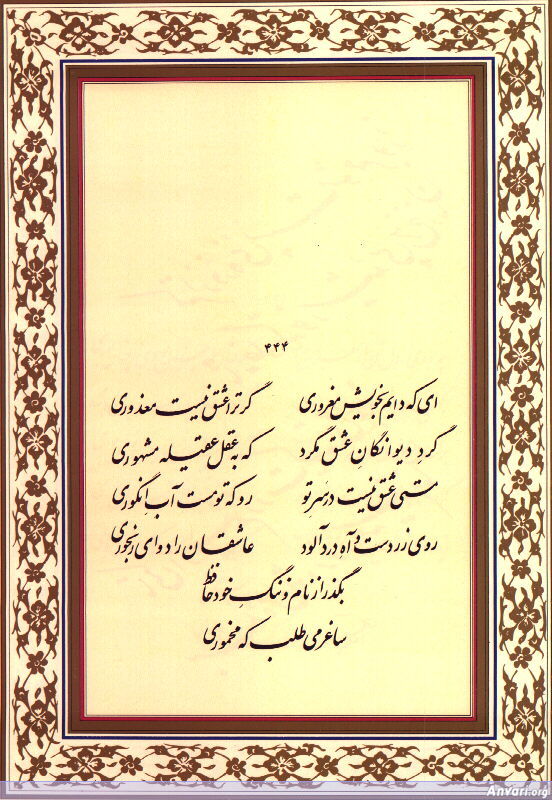 ۴۴۴
ای که دایم بخویش مغروری گر ترا عشق نیست معذوری
گردِ دیوانگانِ عشق مگرد که به عقل عقیله مشهوری
مستی عشق نیست در سرِ تو رو که تو مست آب انگوری
روی زردست و آه دردآلود عاشقان را دوای رنجوری
بگذر از نام و ننگِ خود حافظ
ساغر می طلب که مخموری
AnVari.org